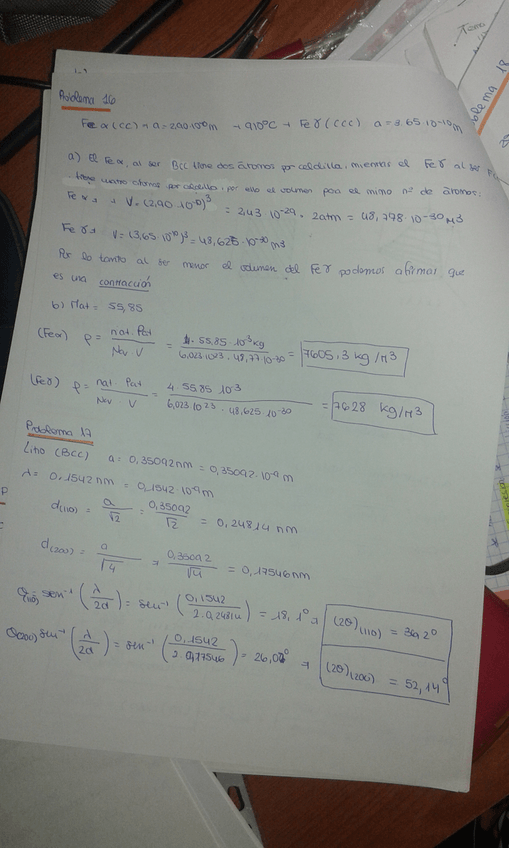 Problema 16
Fe α (CC) → a = 2,90·10⁻¹⁰ m → 910°C → Fe γ (CCC) a = 3,65·10⁻¹⁰ m
a) El Fe α, al ser BCC tiene dos átomos por celdilla, mientras el Fe γ al ser
tiene cuatro átomos por celdilla, por ello el volumen para el mismo nº de átomos:
Fe α → V = (2,90·10⁻¹⁰)³ = 2,43·10⁻²⁹ · 2 atm = 48,778·10⁻³⁰ m³
Fe γ → V = (3,65·10⁻¹⁰)³ = 48,625·10⁻³⁰ m³
Por lo tanto al ser menor el volumen del Fe γ podemos afirmar que
es una contracción
b) Mat = 55,85
(Fe α) ρ = nat. Pat / Nav. V = 4 · 55,85 10⁻³ kg / 6,023·10²³ · 48,77·10⁻³⁰ = 7605,3 kg/m³
(Fe γ) ρ = nat. Pat / Nav V = 4 · 55,85 10⁻³ / 6,023 10²³ · 48,625·10⁻³⁰ = 7628 kg/m³
Problema 17
Litio (BCC) a = 0,35092 nm = 0,35092·10⁻⁹ m
λ = 0,1542 nm = 0,1542·10⁻⁹ m
d(110) = a/√2 = 0,35092/√2 = 0,24814 nm
d(200) = a/√4 = 0,35092/√4 = 0,17546 nm
θ(110) sen⁻¹ (λ/2d) = sen⁻¹ (0,1542 / 2·0,24814) = 18,1° → (2θ)(110) = 36,2°
θ(200) sen⁻¹ (λ/2d) = sen⁻¹ (0,1542 / 2·0,17546) = 26,07° → (2θ)(200) = 52,14°